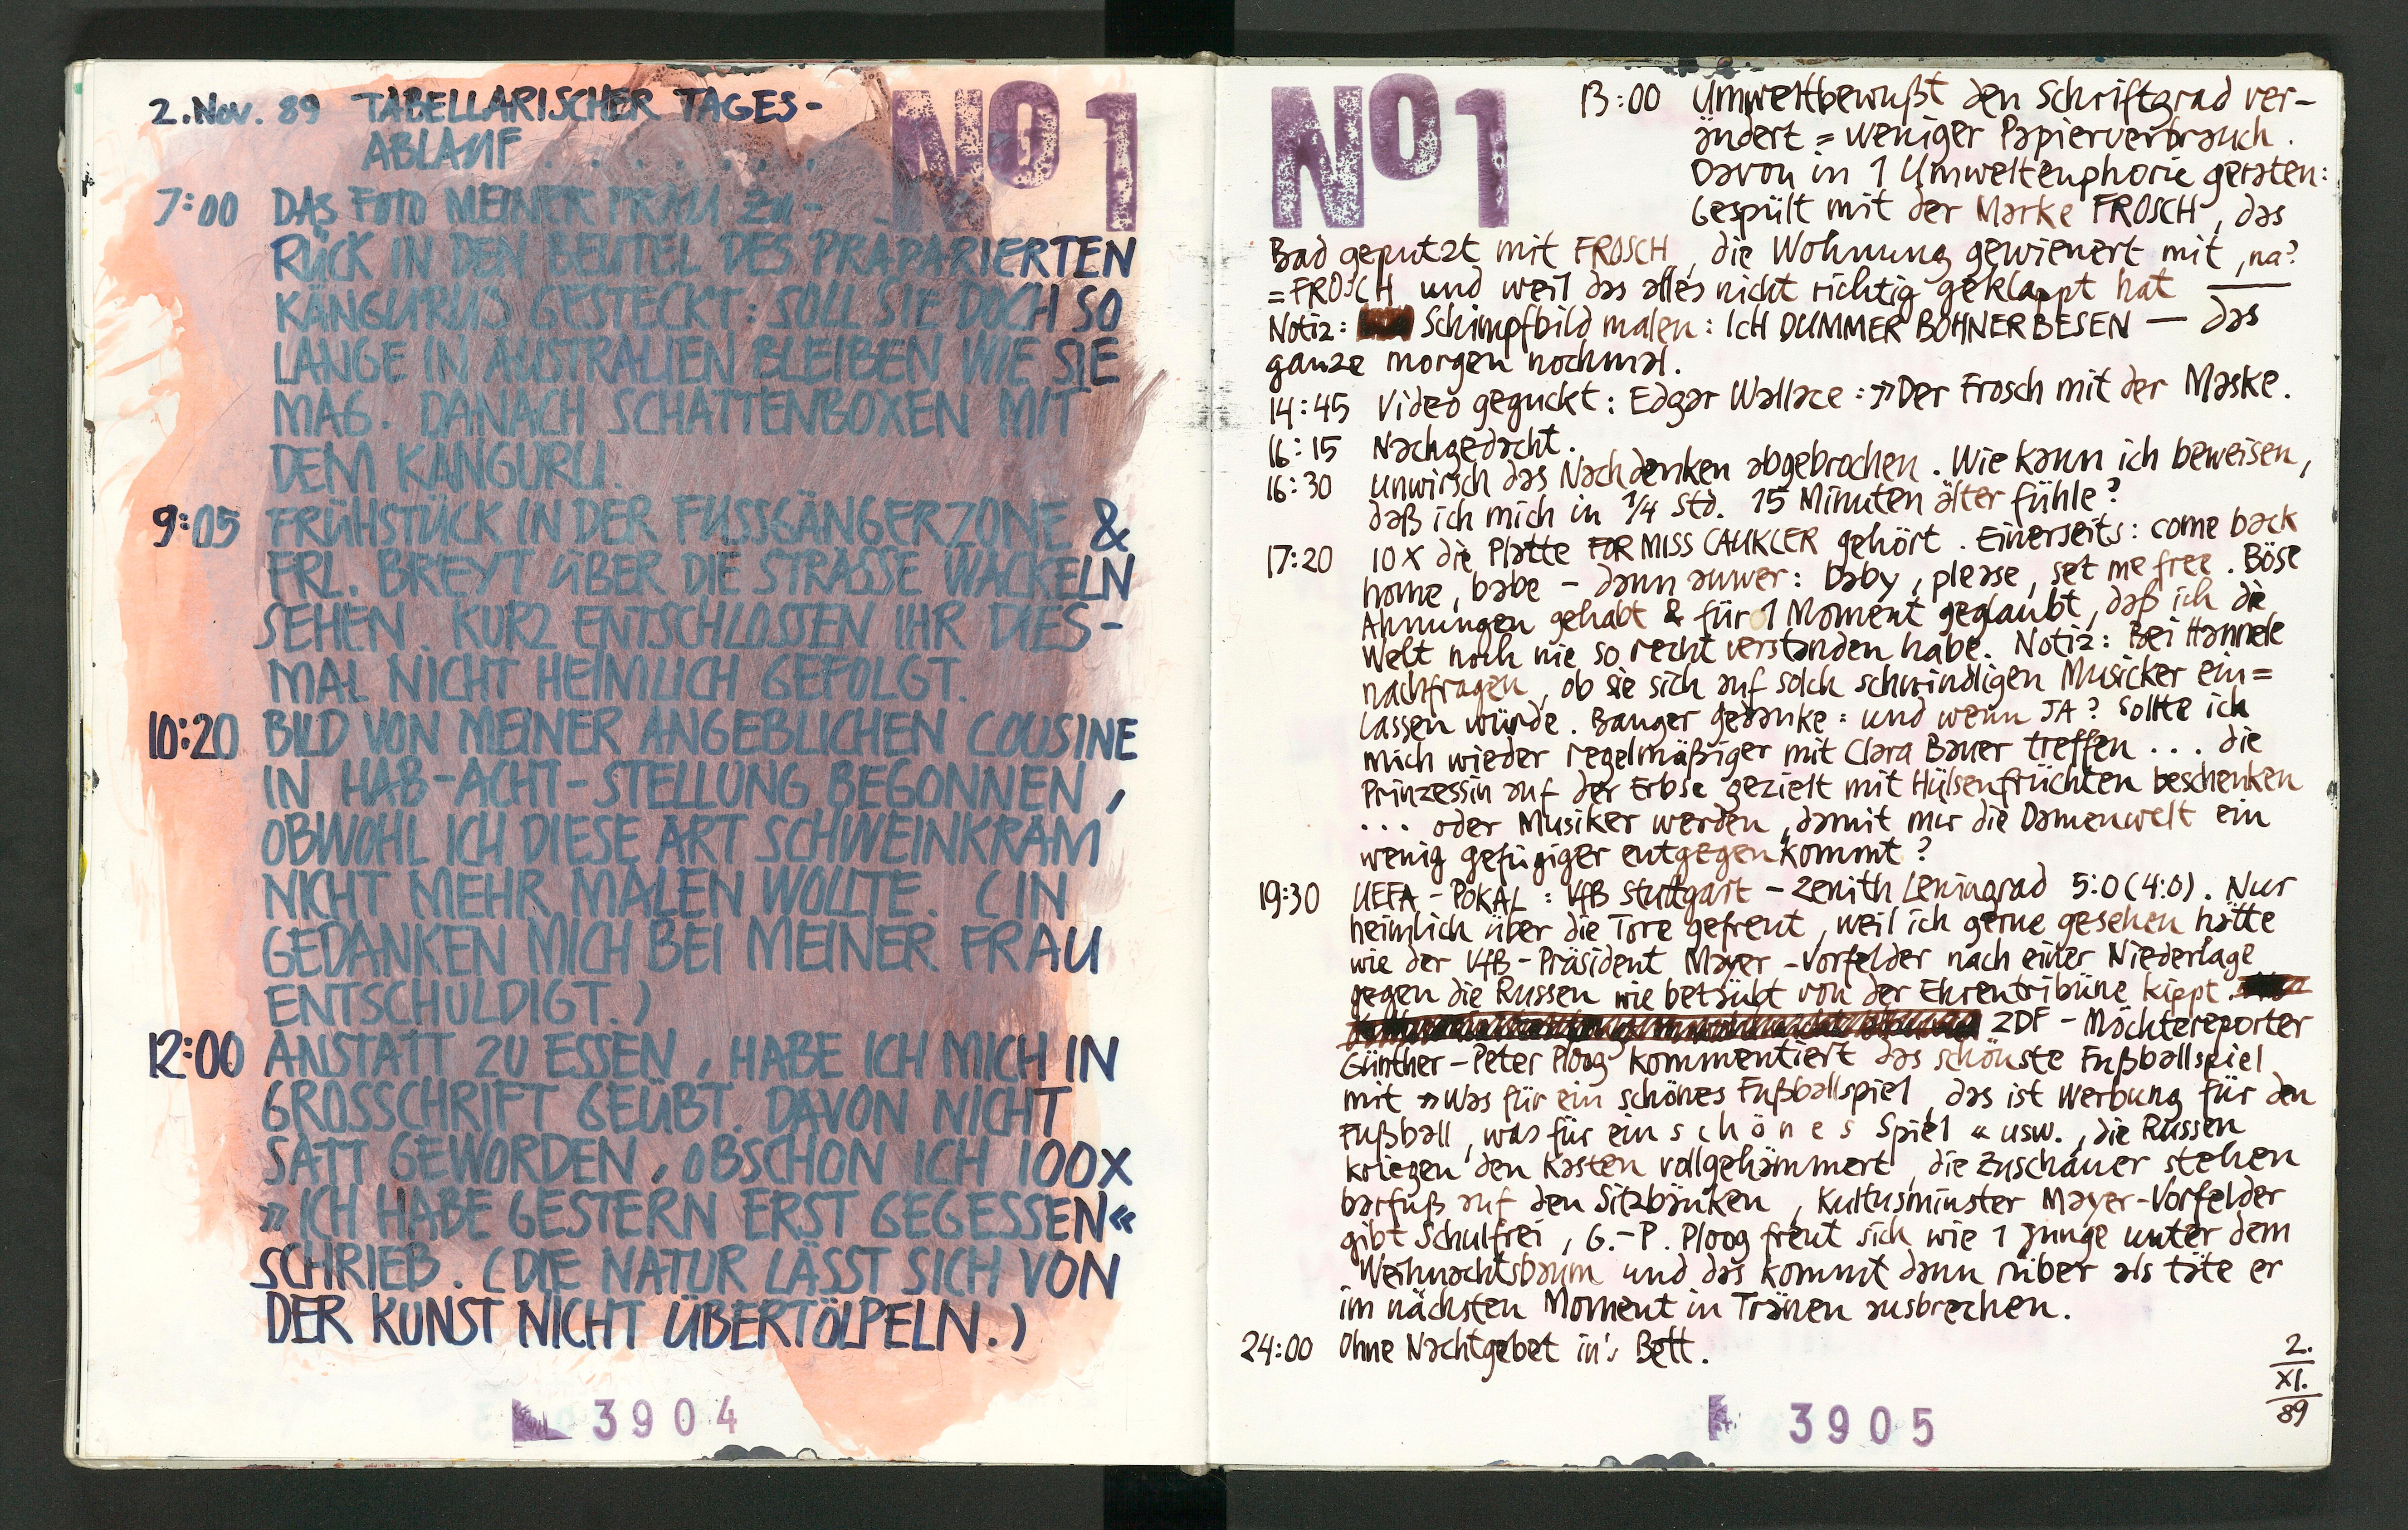 2. Nov. 89 TABELLARISCHER TAGES-
ABLAUF . . . . . . .
No 1
7:00 DAS FOTO MEINER FRAU ZU-
RÜCK IN DEN BEUTEL DES PRÄPARIERTEN
KÄNGURUS GESTECKT: SOLL SIE DOCH SO
LANGE IN AUSTRALIEN BLEIBEN WIE SIE
MAG. DANACH SCHATTENBOXEN MIT
DEM KÄNGURU.
9:05 FRÜHSTÜCK IN DER FUSSGÄNGERZONE &
FRL. BREYT ÜBER DIE STRASSE WACKELN
SEHEN. KURZ ENTSCHLOSSEN IHR DIES-
MAL NICHT HEIMLICH GEFOLGT.
10:20 BILD VON MEINER ANGEBLICHEN COUSINE
IN HAB-ACHT-STELLUNG BEGONNEN,
OBWOHL ICH DIESE ART SCHWEINKRAM
NICHT MEHR MALEN WOLLTE. (IN
GEDANKEN MICH BEI MEINER FRAU
ENTSCHULDIGT.)
12:00 ANSTATT ZU ESSEN, HABE ICH MICH IN
GROSSCHRIFT GEÜBT. DAVON NICHT
SATT GEWORDEN, OBSCHON ICH 100X
»ICH HABE GESTERN ERST GEGESSEN«
SCHRIEB. (DIE NATUR LÄSST SICH VON
DER KUNST NICHT ÜBERTÖLPELN.)
3904
No 1
13:00 Umweltbewußt den Schriftgrad ver-
ändert = weniger Papierverbrauch.
Davon in 1 Umwelteuphorie geraten:
Gespült mit der Marke FROSCH, das
Bad geputzt mit FROSCH, die Wohnung gewienert mit, na?
= FROSCH und weil das alles nicht richtig geklappt hat —
Notiz: Schimpfbild malen: ICH DUMMER BOHNERBESEN — das
ganze morgen nochmal.
14:45 Video geguckt: Edgar Wallace: »Der Frosch mit der Maske.
16:15 Nachgedacht.
16:30 Unwirsch das Nachdenken abgebrochen. Wie kann ich beweisen,
daß ich mich in 1/4 Std. 15 Minuten älter fühle?
17:20 10 X die Platte FOR MISS CAUKLER gehört. Einerseits: come back
home, babe – dann auwer: baby, please, set me free. Böse
Ahnungen gehabt & für 1 Moment geglaubt, daß ich die
Welt noch nie so recht verstanden habe. Notiz: Bei Hannele
nachfragen, ob sie sich auf solch schwindligen Musicker ein=
lassen würde. Banger Gedanke: und wenn JA? Sollte ich
mich wieder regelmäßiger mit Clara Bauer treffen ... die
Prinzessin auf der Erbse gezielt mit Hülsenfrüchten beschenken
... oder Musiker werden, damit mir die Damenwelt ein
wenig gefügiger entgegenkommt?
19:30 UEFA-POKAL: VfB Stuttgart – Zenith Leningrad 5:0 (4:0). Nur
heimlich über die Tore gefreut, weil ich gerne gesehen hätte
wie der VfB-Präsident Mayer-Vorfelder nach einer Niederlage
gegen die Russen wie betäubt von der Ehrentribüne kippt.
ZDF-Möchtereporter
Günther-Peter Ploog kommentiert das schönste Fußballspiel
mit »Was für ein schönes Fußballspiel, das ist Werbung für den
Fußball, was für ein s c h ö n e s Spiel« usw., die Russen
kriegen den Kasten vollgehämmert, die Zuschauer stehen
barfuß auf den Sitzbänken, Kultusminster Mayer-Vorfelder
gibt Schulfrei, G.-P. Ploog freut sich wie 1 Junge unter dem
Weihnachtsbaum und das kommt dann rüber als täte er
im nächsten Moment in Tränen ausbrechen.
24:00 Ohne Nachtgebet in's Bett.
2.
XI.
89
3905